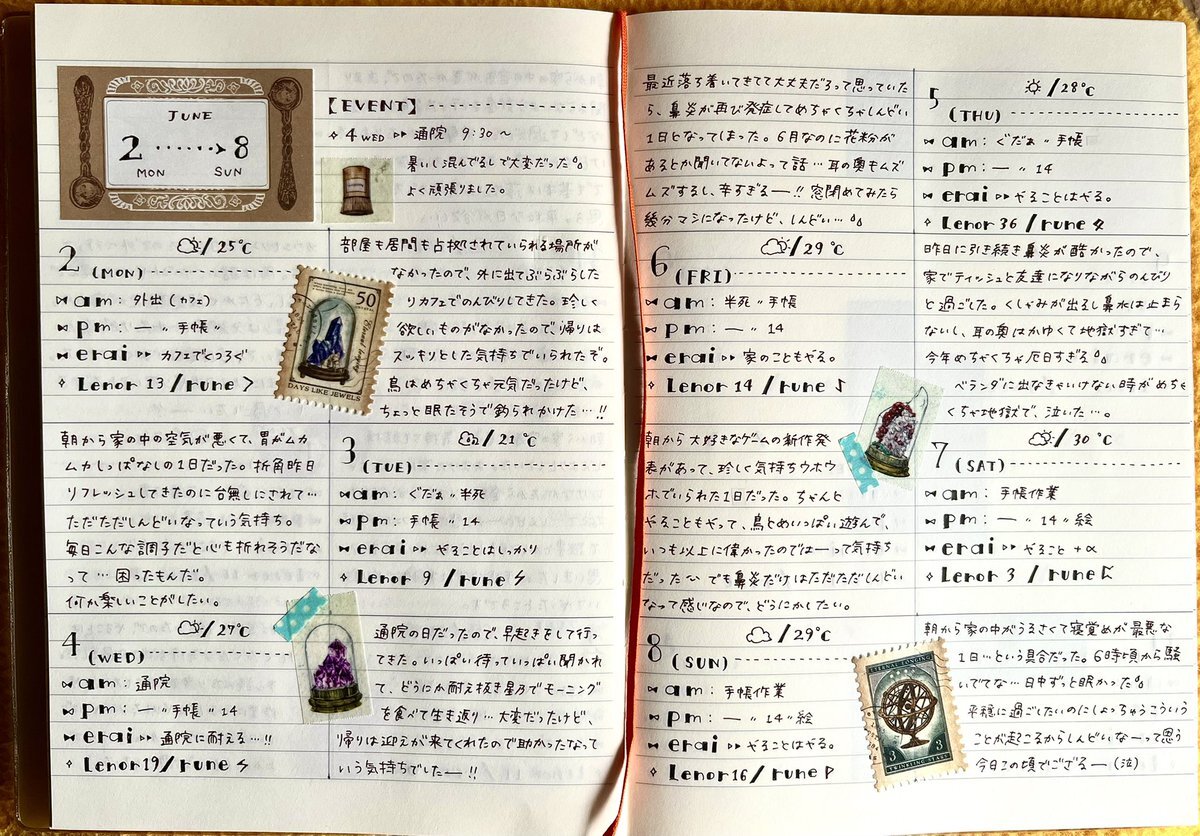 JUNE
2 ······> 8
MON SUN
【EVENT】
✧ 4 WED ▹▹ 通院 9:30 〜
暑いし混んでるしで大変だった
よく頑張りました。
2 (MON)
/25℃
am: 外出(カフェ)
pm: 〃 手帳〃
erai ▹▹ カフェでくつろぐ
✧ Lenor 13 / rune
部屋も居間も占拠されていられる場所が
なかったので、外に出てぶらぶらした
りカフェでのんびりしてきた。珍しく
欲しいものがなかったので帰りは
スッキリとした気持ちでいられたぞ。
鳥はめちゃくちゃ元気だったけど、
ちょっと眠たそうで釣られかけた…!!
50
DAYS LIKE JEWELS
3 (TUE)
/21℃
am: ぐだぁ〃半死
pm: 手帳〃14
erai ▹▹ やることはしっかり
✧ Lenor 9 / rune
朝から家の中の空気が悪くて、胃がムカ
ムカしっぱなしの1日だった。折角昨日
リフレッシュしてきたのに台無しにされて…
ただただしんどいなっていう気持ち。
毎日こんな調子だと心も折れそうだな
って…困ったもんだ。
何か楽しいことがしたい。
4 (WED)
/27℃
am: 通院
pm: ー〃手帳〃14
erai ▹▹ 通院に耐える…!!
✧ Lenor19/ rune
通院の日だったので、早起きをして行っ
てきた。いっぱい待っていっぱい聞かれ
て、どうにか耐え抜き星乃でモーニング
を食べて生き返り…大変だったけど、
帰りは迎えが来てくれたので助かったなって
いう気持ちでしたー!!
5 (THU)
/28℃
am: ぐだぁ〃手帳
pm: ー〃14
erai ▹▹ やることはやる。
✧ Lenor 36 / rune
最近落ち着いてきてて大丈夫だろって思っていた
ら、鼻炎が再び発症してめちゃくちゃしんどい
1日となってしまった。6月なのに花粉が
あるとか聞いてないよって話…耳の奥もムズ
ムズするし、辛すぎるー!!窓閉めてみたら
幾分マシになったけど、しんどい…
6 (FRI)
/29℃
am: 半死〃手帳
pm: ー〃14
erai ▹▹ 家のこともやる。
✧ Lenor 14 / rune
昨日に引き続き鼻炎が酷かったので、
家でティッシュと友達になりながらのんびり
と過ごした。くしゃみが出るし鼻水は止まら
ないし、耳の奥はかゆくて地獄すぎて…
今年めちゃくちゃ厄日すぎる
ベランダに出なきゃいけない時がめちゃ
くちゃ地獄で、泣いた…。
7 (SAT)
/30℃
am: 手帳作業
pm: ー〃14〃絵
erai ▹▹ やること+α
✧ Lenor 3 / rune
朝から大好きなゲームの新作発
表があって、珍しく気持ちウホウ
ホでいられた1日だった。ちゃんと
やることもやって、鳥とめいっぱい遊んで、
いつも以上に偉かったのではーって気持ち
だった〜でも鼻炎だけはただただしんどい
なって感じなので、どうにかしたい。
8 (SUN)
/29℃
am: 手帳作業
pm: ー〃14〃絵
erai ▹▹ やることはやる。
✧ Lenor16 / rune
朝から家の中がうるさくて寝覚めが最悪な
1日…という具合だった。6時頃から騒
いでてな…日中ずっと眠かった
平穏に過ごしたいのにしょっちゅうこういう
ことが起こるからしんどいなーって思う
今日この頃でござるー(泣)
ETERNAL LONGING
3 3
TWINKLING STARS